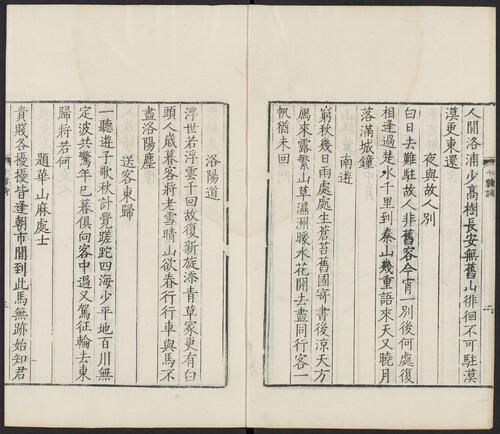 人閒洛浦少高樹長安無舊山徘徊不可駐漠
漠更東還
夜與故人別
白日去難駐故人非舊客今宵一別後何處復
相逢過楚水千里到秦山幾重語來天又曉月
落滿城鐘
南遊
窮秋幾日雨處處生蒼苔舊國寄書後涼天方
鴈來露繁山草濕洲暖水花開去盡同行客一
帆猶未回
洛陽道
浮世若浮雲千回故復新旋添青草冢更有白
頭人歲暮客將老雪晴山欲春行行車與馬不
盡洛陽塵
送客東歸
一聽遊子歌秋計覺蹉跎四海少平地百川無
定波共驚年已暮俱向客中過又駕征輪去東
歸將若何
題華山麻處士
貴賤各擾擾皆逢朝市閒到此馬無跡始知君